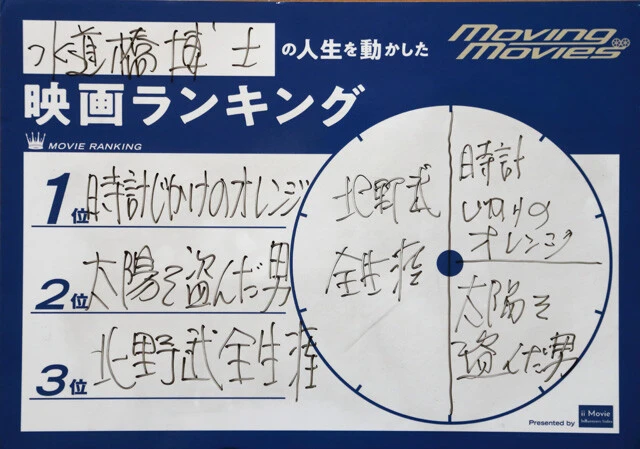 水道橋博士
の人生を動かした
Moving Movies
映画ランキング
MOVIE RANKING
1位 時計じかけのオレンジ
2位 太陽を盗んだ男
3位 北野武全生涯
北野武
全生涯
時計
じかけの
オレンジ
太陽を
盗んだ男
Presented by
ii Movie